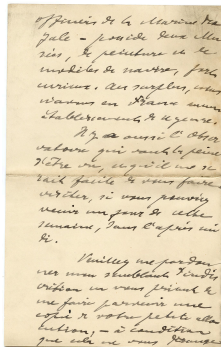 officiers de la Marine Ro-
yale – possède deux Mu-
sées, de peinture et de
modèles de navire, forts
curieux. Au surplus, nous
n'avons en France aucun
établissement de ce genre.
Il y a aussi l'Obser-
vatoire qui vaut la peine
d'être vu, et qu'il me se-
rait facile de vous faire
visiter, si vous pouviez
venir un jour de cette
semaine, dans l'après mi-
di.
Veuillez me pardon-
ner mon semblant d'indis-
crétion en vous priant de
me faire parvenir une
copie de votre petite allo-
cution, – à condition
que cela ne vous dérange